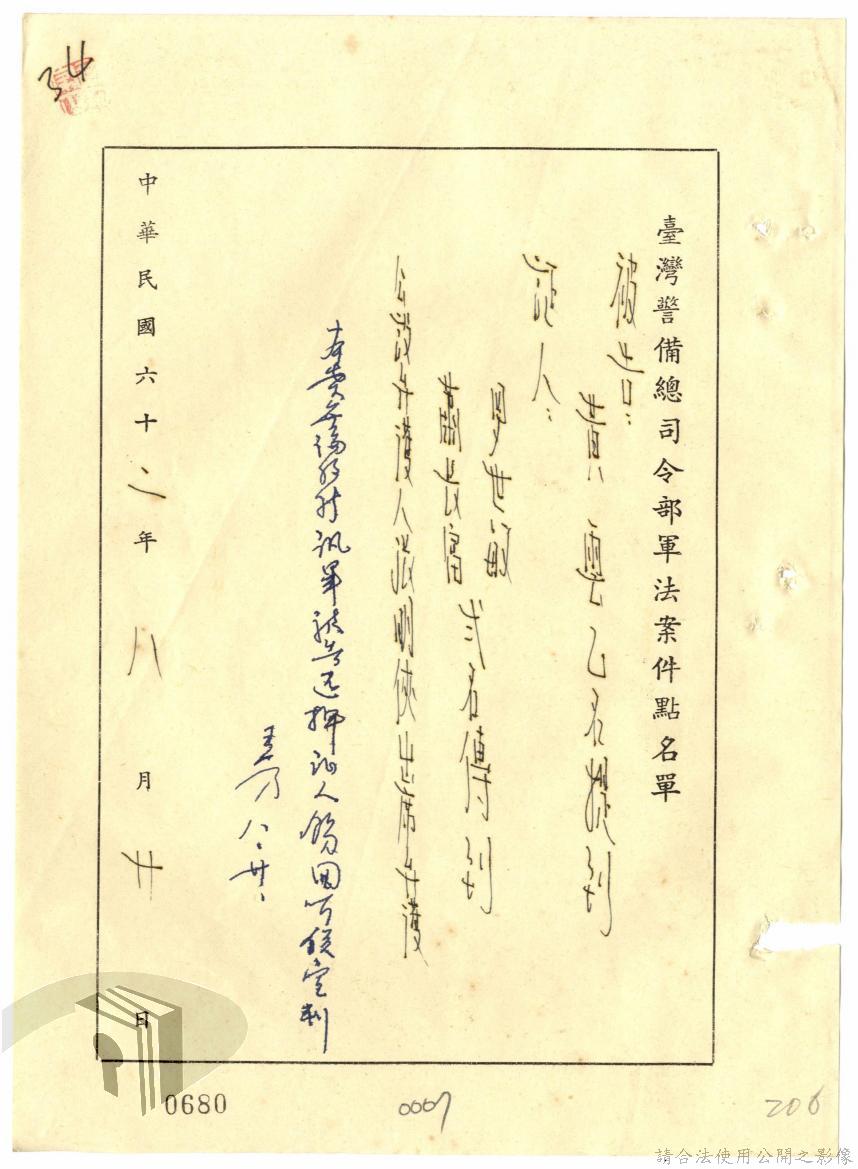 34
臺灣警備總司令部軍法案件點名單
被告：
黃 乙名提到
證人：
世
長富 弍名傳到
公設弁護人張明俠出席弁護
本 訊畢被告還押證人飭回 候定判
八、廿、
中華民國六十二年八月廿日
0680
0007
206
請合法使用公開之影像